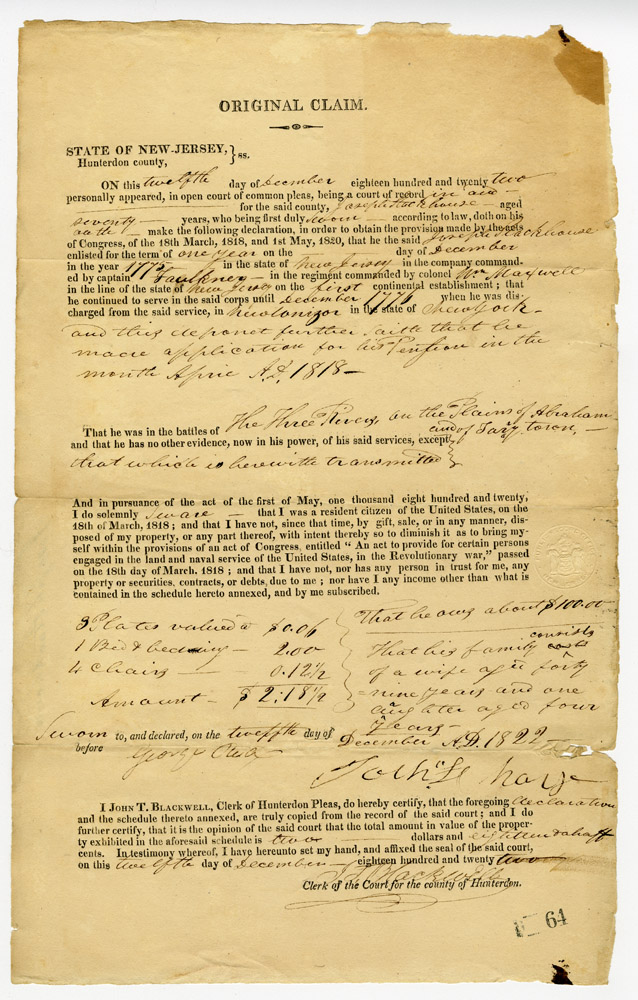 ORIGINAL CLAIM.
STATE OF NEW-JERSEY, } ss.
Hunterdon county,
ON this twelfth day of December eighteen hundred and twenty two
personally appeared, in open court of common pleas, being a court of record in and
for the said county, Joseph Stackhouse aged
seventy years, who being first duly sworn according to law, doth on his
oath make the following declaration, in order to obtain the provision made by the acts
of Congress, of the 18th March, 1818, and 1st May, 1820, that he the said Joseph Stackhouse
enlisted for the term of one year on the day of December
in the year 1775 in the state of New Jersey in the company command-
ed by captain Faulkner in the regiment commanded by colonel Wm Maxwell
in the line of the state of New Jersey on the first continental establishment ; that
he continued to serve in the said corps until December 1776 when he was dis-
charged from the said service, in in the state of New York
and this deponet further saith that he
made application for his Pension in the
month April A.D. 1818 —
That he was in the battles of The Three Rivers, on the Plains of Abraham
and that he has no other evidence, now in his power, of his said services, except and of town, —
that which is herewith transmitted
And in pursuance of the act of the first of May, one thousand eight hundred and twenty,
I do solemnly sware — that I was a resident citizen of the United States, on the
18th of March, 1818 ; and that I have not, since that time, by gift, sale, or in any manner, dis-
posed of my property, or any part thereof, with intent thereby so to diminish it as to bring my-
self within the provisions of an act of Congress, entitled “ An act to provide for certain persons
engaged in the land and naval service of the United States, in the Revolutionary war,” passed
on the 18th day of March. 1818 ; and that I have not, nor has any person in trust for me, any
property or securities, contracts, or debts, due to me ; nor have I any income other than what is
contained in the schedule hereto annexed, and by me subscribed.
3 Plates valued a $0.06
1 Bed & bedding — 2.00
4 chairs — 0.12½
Amount — $2:18½
That he owes about $100.00
That his family consists
of a wife aged forty
=nine years and one
daughter aged four
years —
Sworn to, and declared, on the twelfth day of December A.D. 1822
before
I JOHN T. BLACKWELL, Clerk of Hunterdon Pleas, do hereby certify, that the foregoing declaration
and the schedule thereto annexed, are truly copied from the record of the said court ; and I do
further certify, that it is the opinion of the said court that the total amount in value of the proper-
ty exhibited in the aforesaid schedule is two dollars and eighteen & a half
cents. In testimony whereof, I have hereunto set my hand, and affixed the seal of the said court,
on this twelfth day of December eighteen hundred and twenty two
J. T. Blackwell
Clerk of the Court for the county of Hunterdon.
64